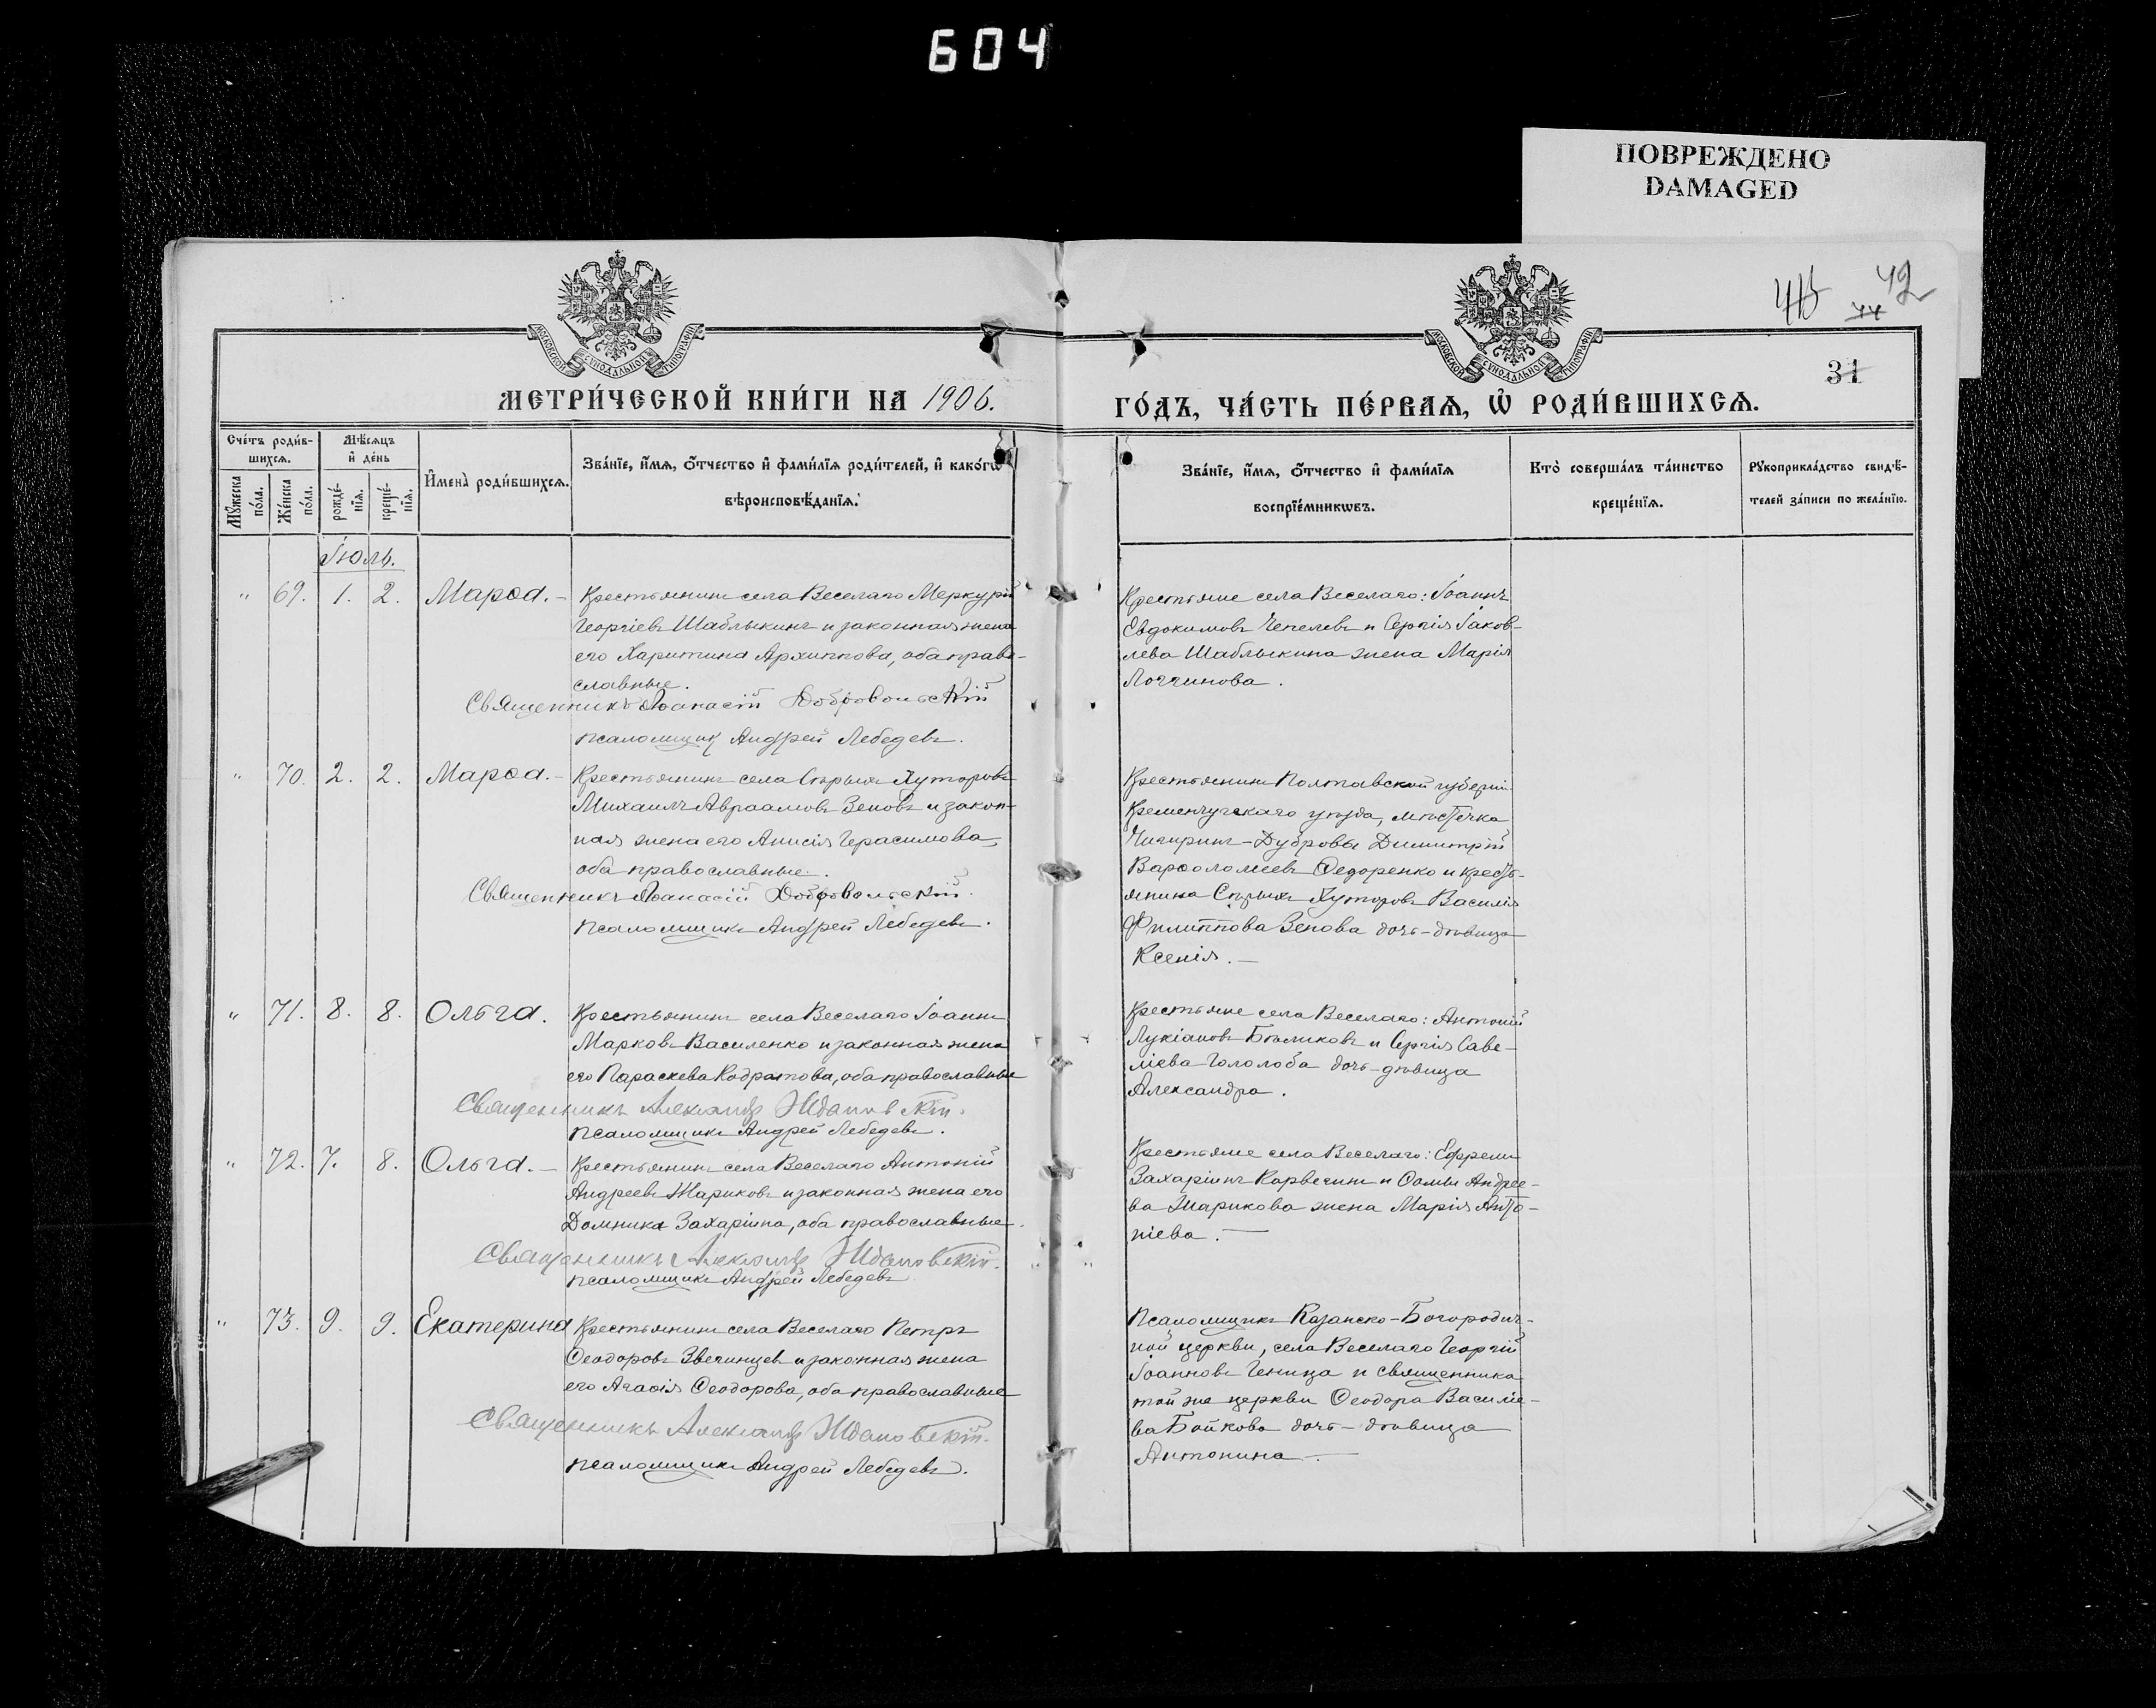 604
ПОВРЕЖДЕНО
DAMAGED
42
31
МОСКОВСКОЙ СѴНОДАЛЬНОЙ ТИПОГРАФІИ
МОСКОВСКОЙ СѴНОДАЛЬНОЙ ТИПОГРАФІИ
МЕТРИ́ЧЕСКОЙ КНИ́ГИ НА 1906.
ГО́ДЪ, ЧА́СТЬ ПЕ́РВАѦ, Ѡ҆ РОДИ́ВШИХСѦ.
Сче́тъ роди́в-
шихсѧ.
Мꙋ́жеска по́ла.
Же́нска по́ла.
Мѣ́сѧцъ
и҆ де́нь
рожде́-
нїѧ.
креще́-
нїѧ.
И҆мена̀ роди́вшихсѧ.
Зва́нїе, и҆́мѧ, ѻ҆́тчество и҆ фами́лїѧ роди́телей, и҆ како́гѡ
вѣроисповѣ́данїѧ.
Зва́нїе, и҆́мѧ, ѻ҆́тчество и҆ фами́лїѧ
воспрїе́мникѡвъ.
Кто̀ соверша́лъ та́инство
креще́нїѧ.
Рꙋкоприкла́дство свидѣ́-
телей за́писи по жела́нїю.
Іюль.
" 69. 1. 2. Марѳа.-
Крестьянинъ села Веселаго Меркурій
Георгіевъ Шаблыкинъ и законная жена
его Харитина Архиппова, оба право-
славные.
Священникъ Аѳанасій Добровольскій
псаломщик Андрей Лебедевъ.
Крестьяне села Веселаго: Іоаннъ
Евдокимовъ Чепелевъ и Сергія Іаков-
лева Шаблыкина жена Марія
Логгинова.
" 70. 2. 2. Марѳа.-
Крестьянинъ села Старыхъ Хуторовъ
Михаилъ Авраамовъ Зеновъ и закон-
ная жена его Анисія Герасимова,
оба православные.
Священникъ Аѳанасій Добровольскій.
Псаломщикъ Андрей Лебедевъ.
Крестьянинъ Полтавской губерніи
Кременчугскаго уѣзда, мѣстечка
Чигиринъ-Дубровы Димитрій
Варѳоломеевъ Федоренко и крестья-
нина Старыхъ Хуторовъ Василія
Филиппова Зенова дочь-дѣвица
Ксенія.—
" 71. 8. 8. Ольга.
Крестьянинъ села Веселаго Іоаннъ
Марковъ Василенко и законная жена
его Параскева Кодратова, оба православные
Священникъ Александр Ждановскій.
Псаломщикъ Андрей Лебедевъ.
Крестьяне села Веселаго: Антоній
Лукіановъ Бѣликовъ и Сергія Саве-
ліева Гололоба дочь-дѣвица
Александра.
" 72. 7. 8. Ольга.-
Крестьянинъ села Веселаго Антоній
Андреевъ Жариковъ и законная жена его
Домника Захаріина, оба православные.
Священникъ Александр Ждановскій.
псаломщикъ Андрей Лебедевъ
Крестьяне села Веселаго: Ефремъ
Захаріинъ и Ѳомы Андрее-
ва Жарикова жена Марія Анто-
ніева.—
" 73. 9. 9. Екатерина
Крестьянинъ села Веселаго Петръ
Ѳеодоровъ Звегинцевъ и законная жена
его Агаѳія Ѳеодорова, оба православные
Священникъ Александр Ждановскій.
псаломщикъ Андрей Лебедевъ.
Псаломщикъ Казанско-Богородич-
ной церкви, села Веселаго Георгій
Іоанновъ и священника
той же церкви Ѳеодора Василіе-
ва Бойкова дочь-дѣвица
Антонина.—